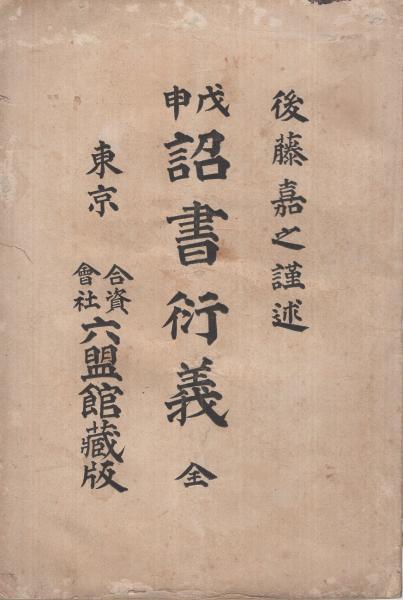 後藤嘉之謹述
戊申詔書衍義 全
東京 合資會社六盟館藏版